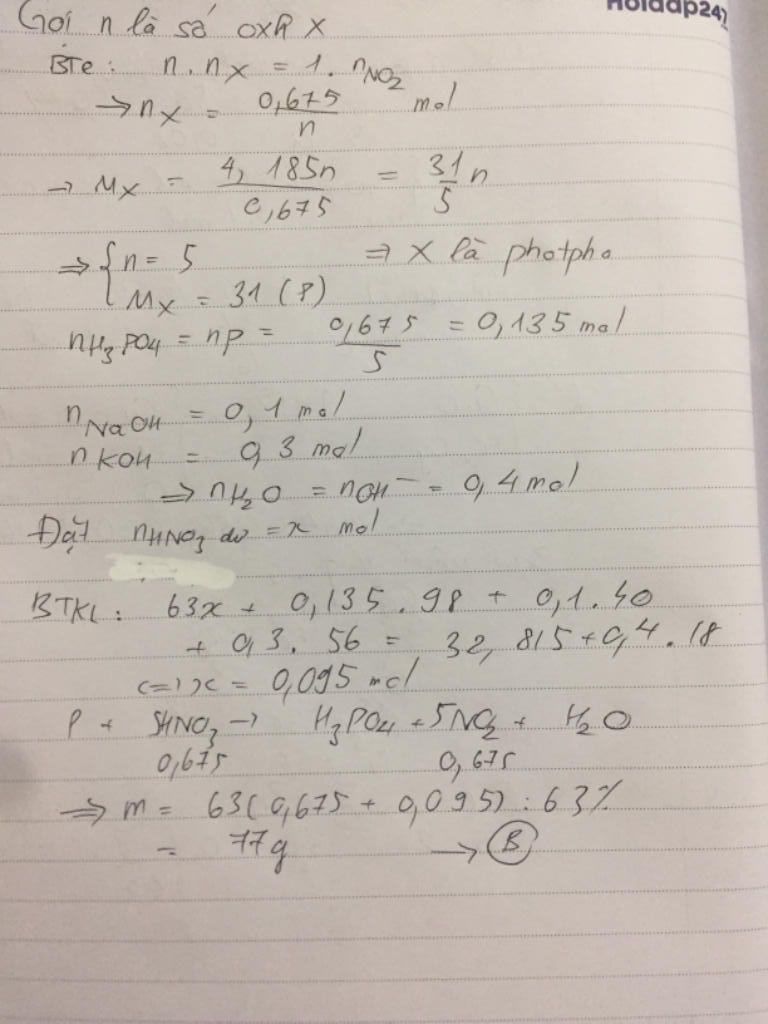 Hoidap247
Gọi n là số oxh X
BTe: n . nX = 1 . nNO2
→ nX = 0,675/n mol
→ MX = 4,185n/0,675 = 31/5 n
⇒ { n = 5 ⇒ X là photpho
MX = 31 (P)
nH3PO4 = nP = 0,675/5 = 0,135 mol
nNaOH = 0,1 mol
nKOH = 0,3 mol
⇒ nH2O = nOH⁻ = 0,4 mol
Đặt nHNO3 dư = x mol
BTKL: 63x + 0,135 . 98 + 0,1 . 40
+ 0,3 . 56 = 32,815 + 0,4 . 18
<=> x = 0,095 mol
P + 5HNO3 → H3PO4 + 5NO2 + H2O
0,675 0,675
⇒ m = 63(0,675 + 0,095) : 63%
= 77g → B